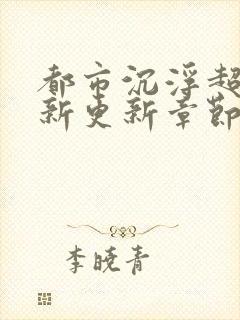 都市沉浮超
新更新章節
李曉青